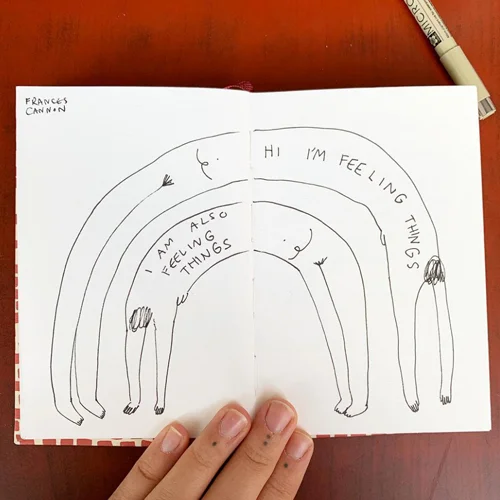 FRANCES
CANNON
HI I'M FEELING THINGS
I AM ALSO
FEELING
THINGS
MICRO